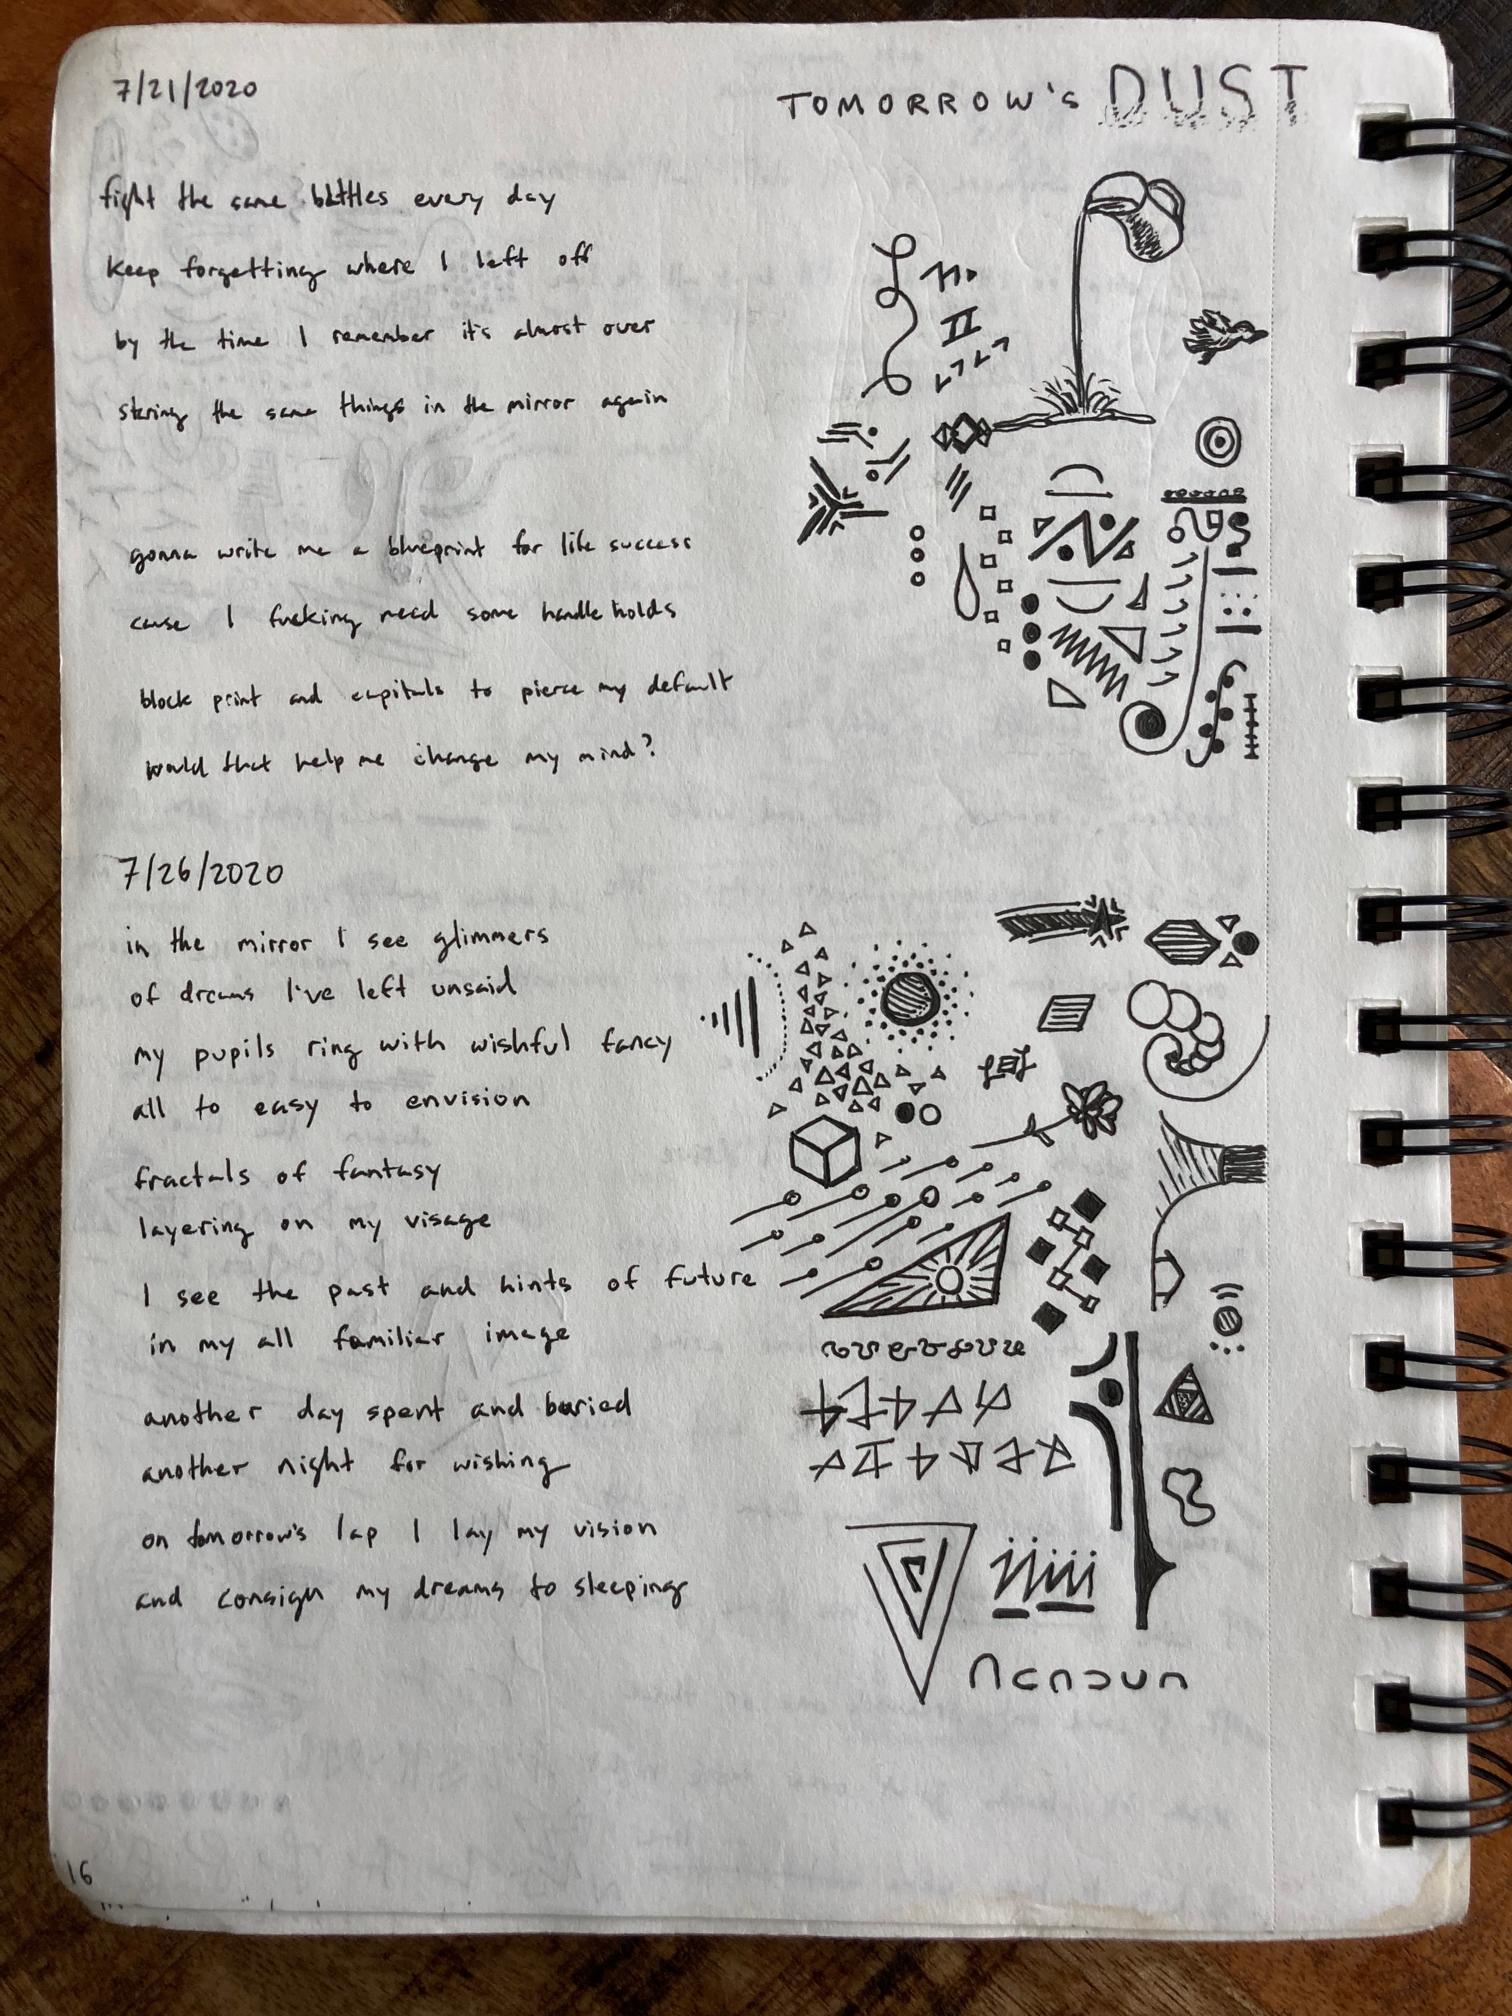 7/21/2020
TOMORROW'S DUST
fight the same battles every day
keep forgetting where I left off
by the time I remember it's almost over
staring the same things in the mirror again
gonna write me a blueprint for life success
cause I fucking need some handle holds
block print and capitals to pierce my default
would that help me change my mind?
7/26/2020
in the mirror I see glimmers
of dreams I've left unsaid
my pupils ring with wishful fancy
all to easy to envision
fractals of fantasy
layering on my visage
I see the past and hints of future
in my all familiar image
another day spent and buried
another night for wishing
on tomorrow's lap I lay my vision
and consign my dreams to sleeping
16